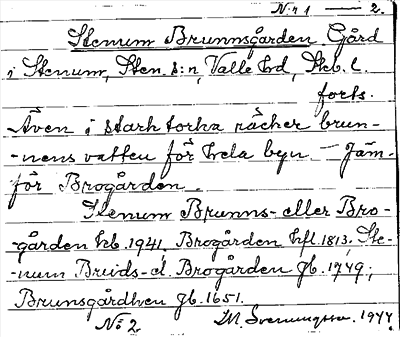 N:r 1 — 2.
Stenum Brunnsgården Gård
i Stenum, Sten. s:n, Valle hd, Skb. l.
forts.
Även i stark torka räcker brun-
-nens vatten för hela byn. — Jäm-
för Brogården.
Stenum Brunns- eller Bro-
-gården kb. 1941. Brogården hfl. 1813. Ste-
-num Bruds- el. Brogården jb. 1749;
Brunsgårdhen jb. 1651.
No 2 M. Svenungson. 1944.